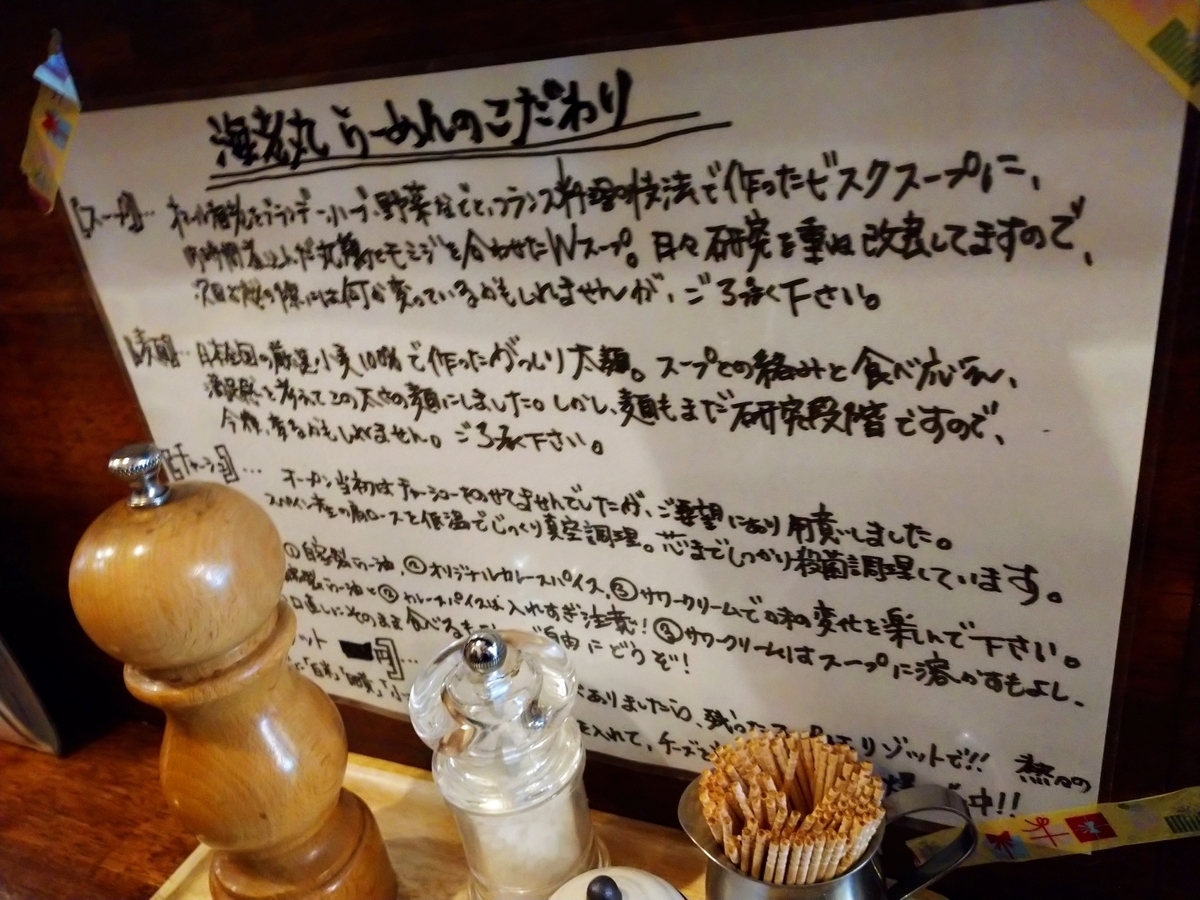 海老丸らーめんのこだわり
【スープ】… オマール海老をブランデー、ハーブ、野菜などと、フランス料理の技法で作ったビスクスープに、
時間煮込んだ丸鶏とモミジを合わせたWスープ。日々研究を重ね改良してますので、
次回お越の際には何か変っているかもしれませんが、ご了承下さい。
【麺】… 日本全国の厳選小麦100%で作ったがっしり太麺。スープとの絡みと食べ応え、
満足感を考えてこの太さの麺にしました。しかし、麺もまだ研究段階ですので、
今後、変るかもしれません。ご了承下さい。
チャーシュー】… オープン当初はチャーシューをのせてませんでしたが、ご要望により用意しました。
スペイン産の肩ロースを低温でじっくり真空調理。芯までしっかり殺菌調理しています。
①自家製らー油、②オリジナルカレースパイス、③サワークリームで味の変化を楽しんで下さい。
製らー油と②カレースパイスは入れすぎ注意!③サワークリームはスープに溶かすもよし、
口直しにそのまま食べるも ご自由にどうぞ!
ット 円】…
ありましたら、残ったスープ リゾットで!! 熱々の
を入れて、チーズと 中!!